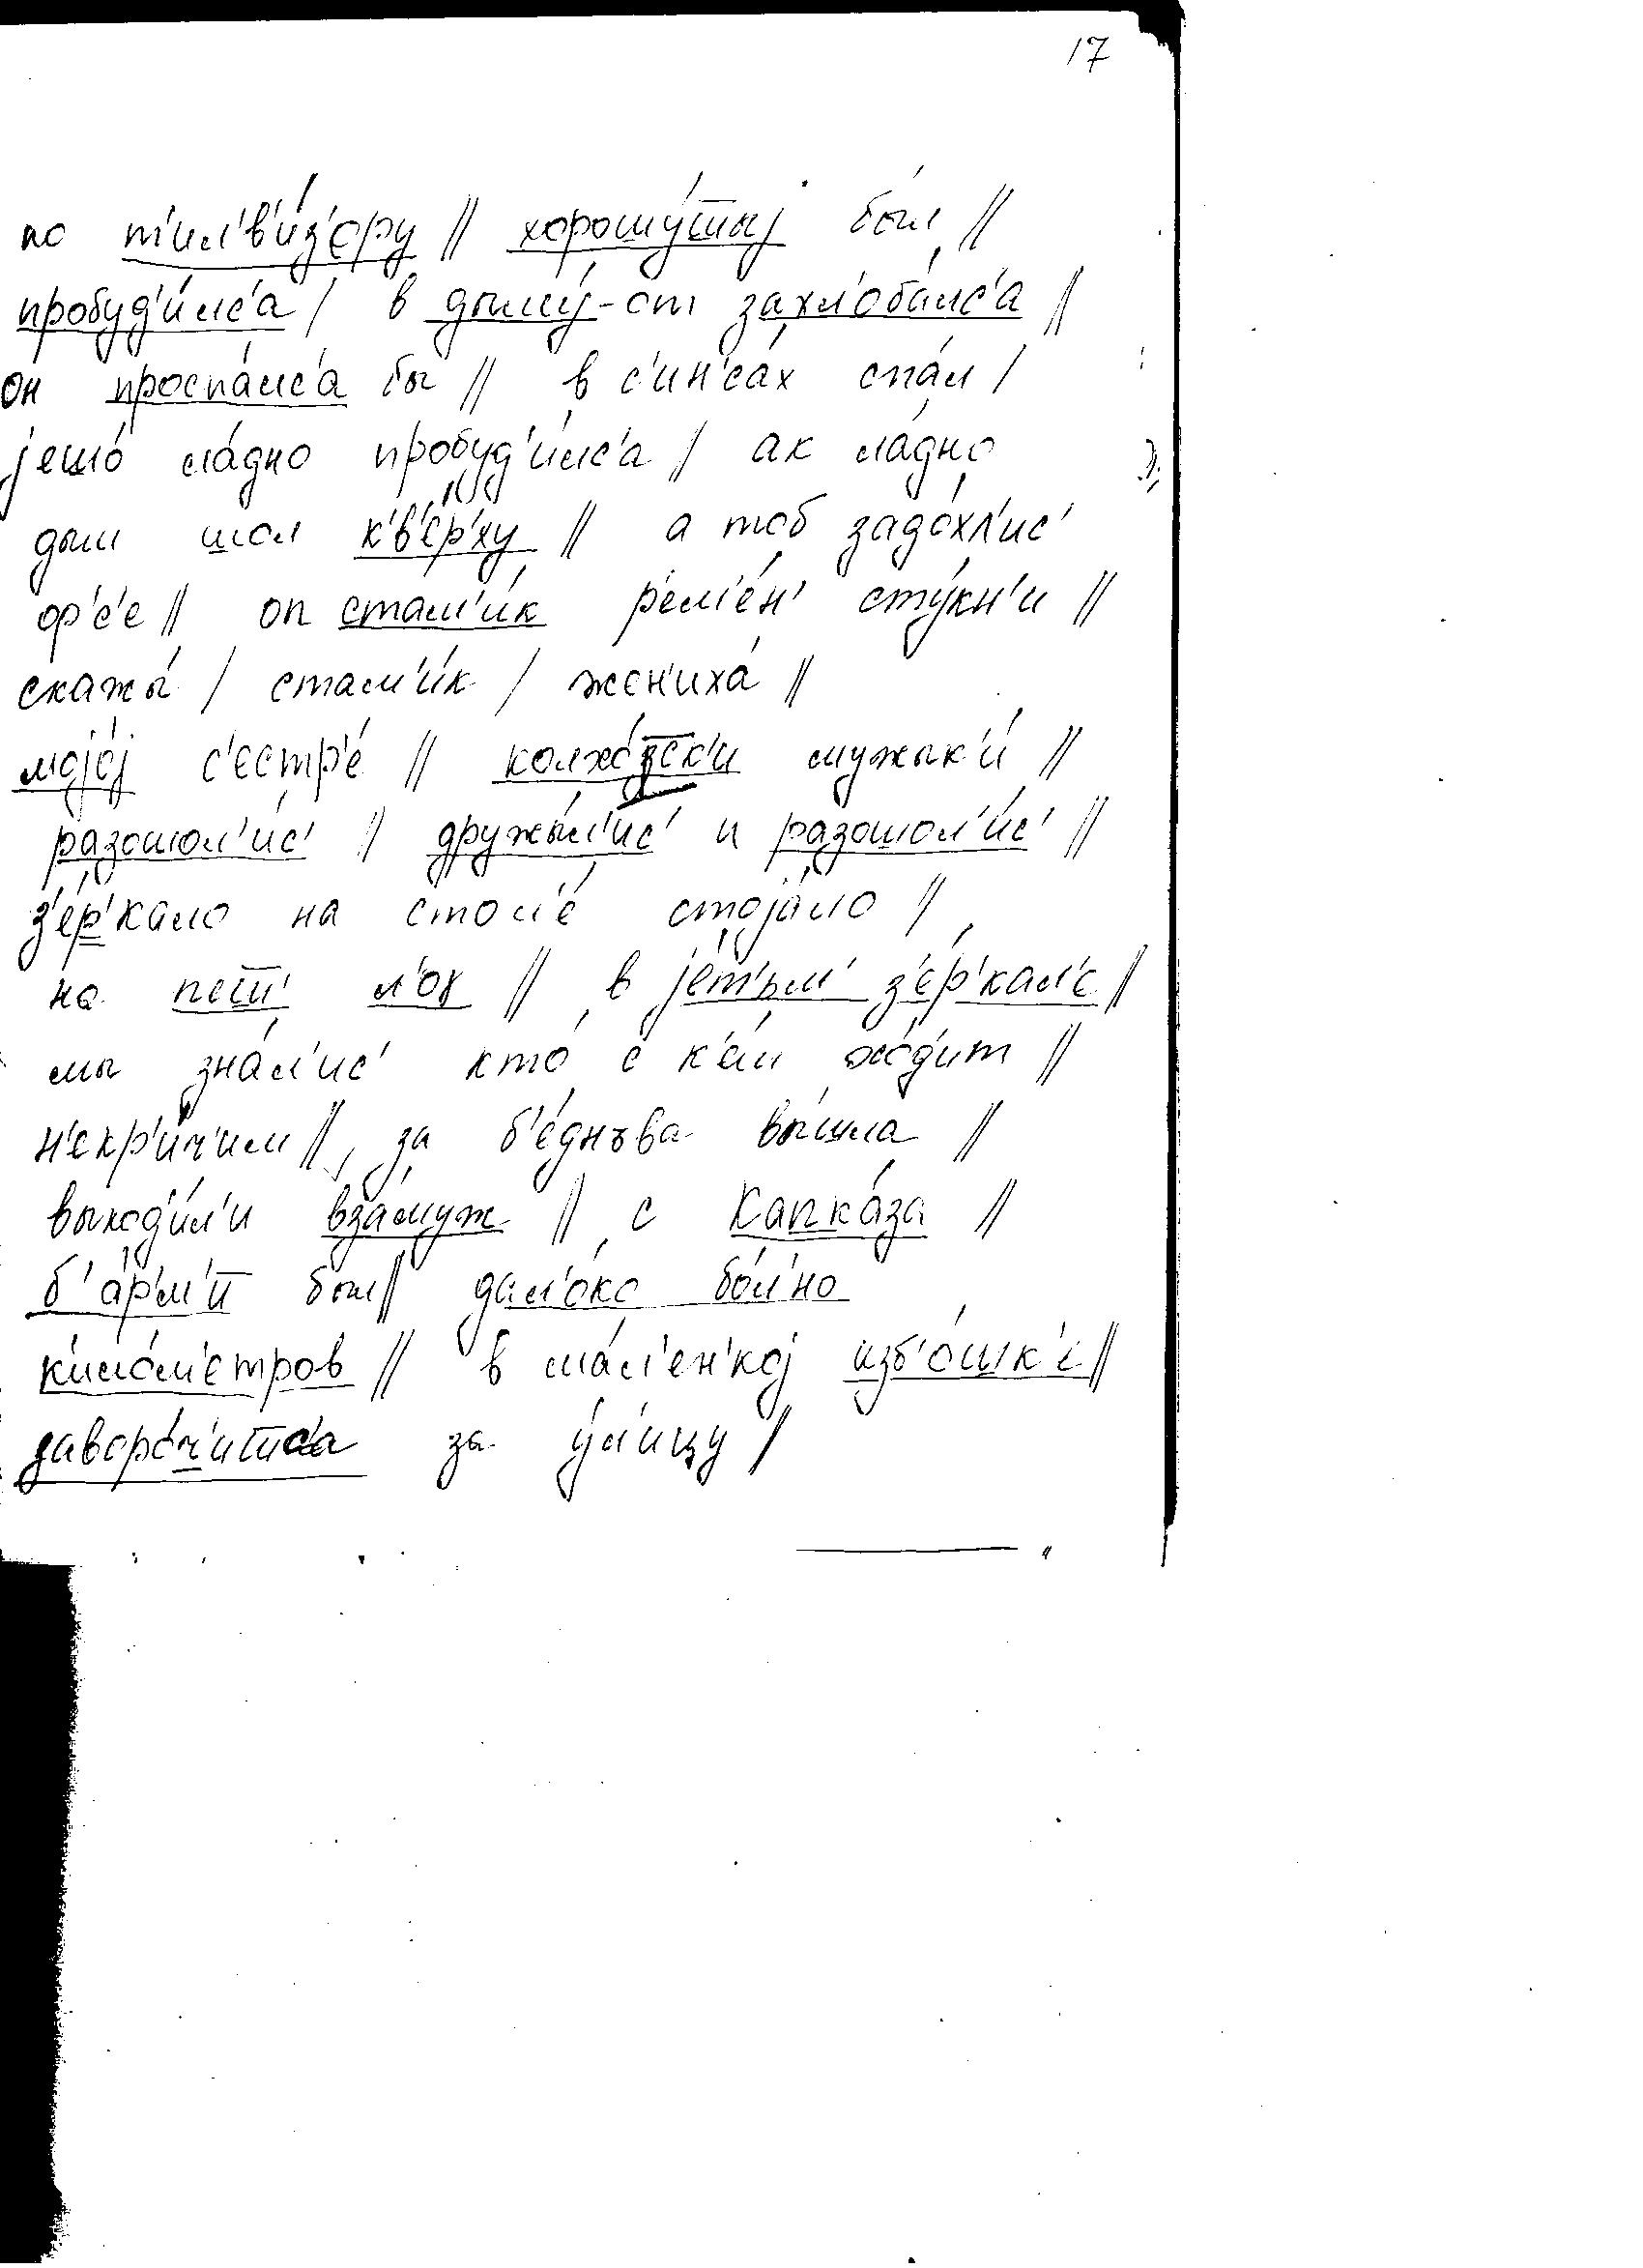 17
по т'ил'в'и́з'ору // хорошу́тыj бы́л //
пробуд'и́лс'а / в дыму́-от захл'оба́лс'а //
он проспа́лс'а бы // в с'ин'са́х спа́л /
jешо́ ла́дно пробуд'и́лс'а / ак ла́дно
дым шол к'в'е́р'ху // а тоб задо́хл'ис'
ор'е'е // оп стал'и́к рем'е́н' сту́кн'и //
скажы́ / стал'и́к / жен'иха́ //
моjо́j с'естр'е́ // колхо́зск'и мужык'и́ //
разошол'и́с' // дружы́л'ис' и разошол'и́с' //
з'е́р'кало на стол'е́ стоjа́ло //
на пет' л'о́х // в jе́т'ьм' з'е́р'кал'е //
мы зна́л'ис' кто́ с к'е́м хо́д'ит //
н'екр'ич'и́м // за б'е́дньва вы́шла //
выход'и́л'и вза́муж // с Капка́за //
б'а́р'м'и бы́л // дал'око́ бо́л'но
к'ило́м'етров // в ма́л'ен'коj изб'о́шк'е //
заворо́ч'итса за у́л'ицу /